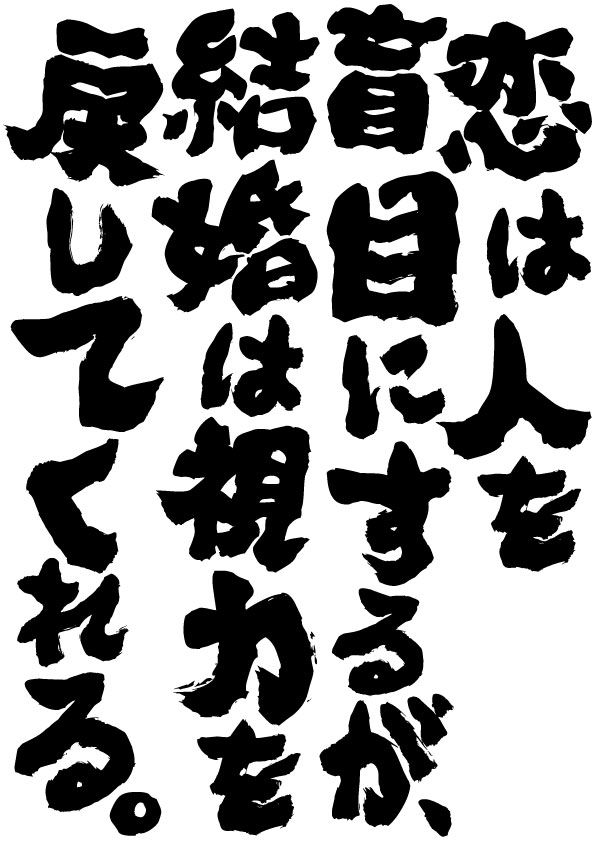 恋は人を
盲目にするが、
結婚は視力を
戻してくれる。